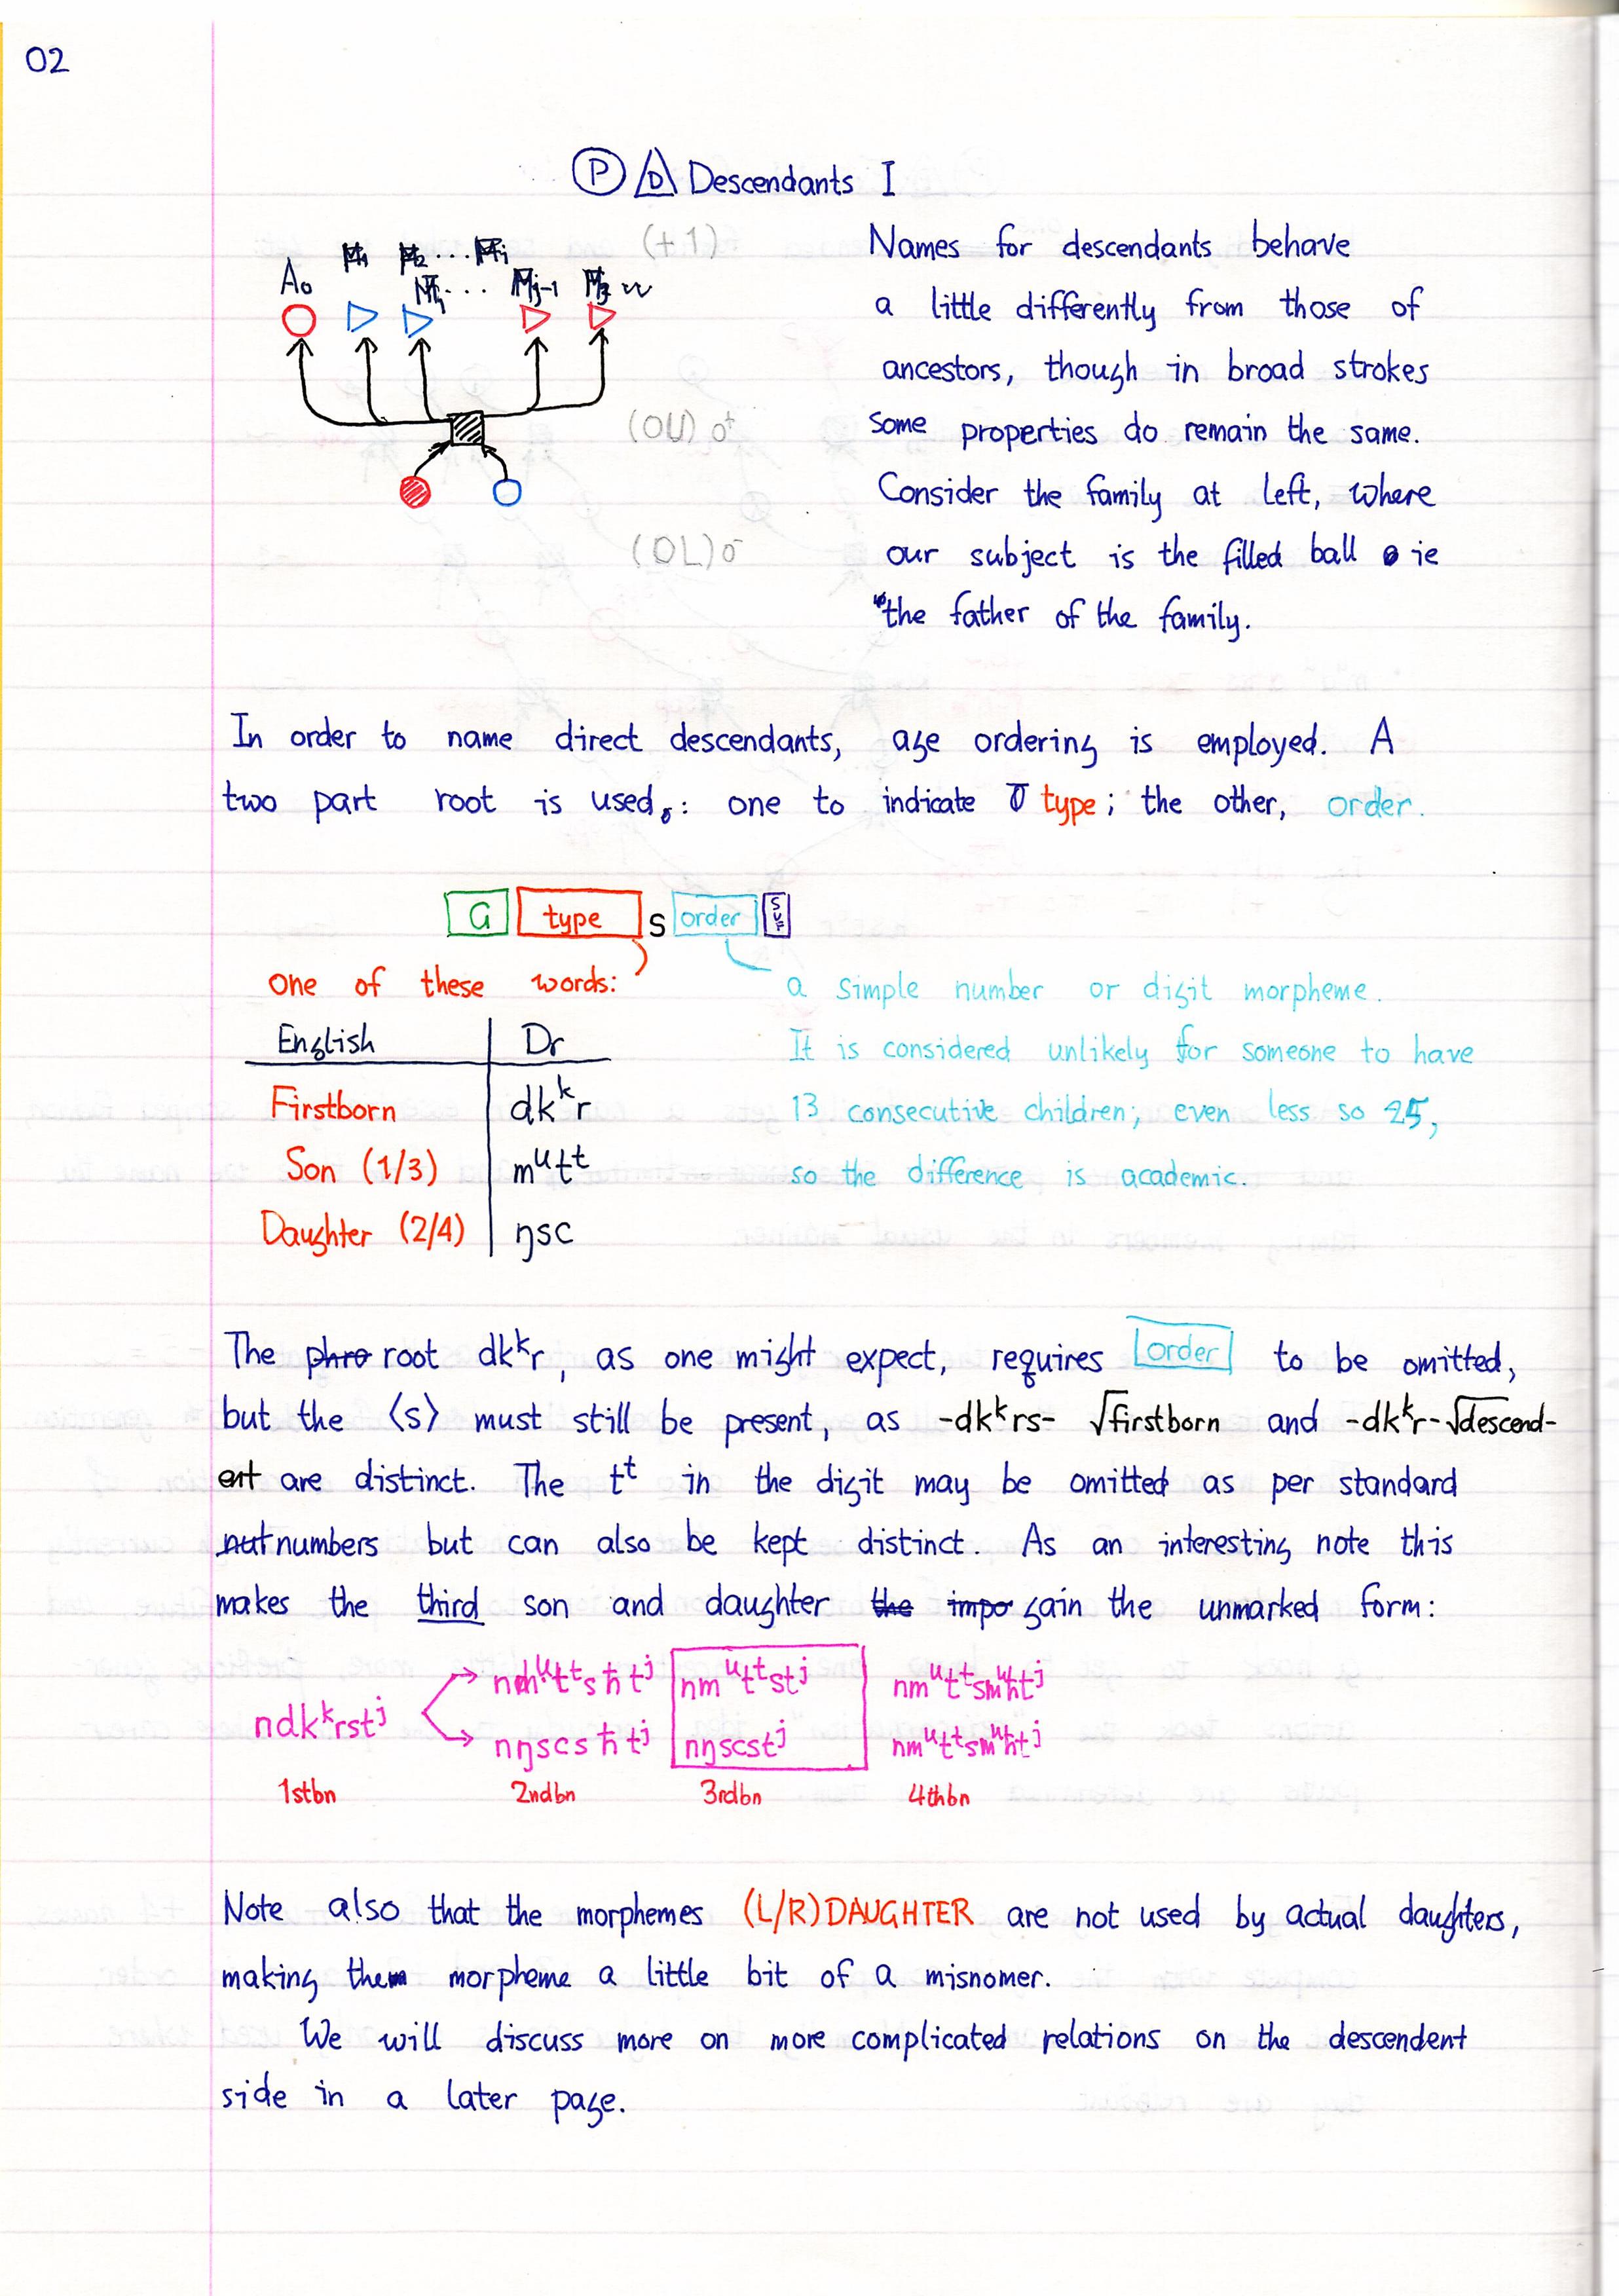 02
Ⓟ D Descendants I
(+1)
A₀
(OU) o⁺
(OL) o⁻
Names for descendants behave
a little differently from those of
ancestors, though in broad strokes
some properties do remain the same.
Consider the family at left, where
our subject is the filled ball ie
the father of the family.
In order to name direct descendants, age ordering is employed. A
two part root is used: one to indicate type; the other, order.
G type s order SUF
one of these words:
English Dr
Firstborn dkᵏr
Son (1/3) mᶸtᵗ
Daughter (2/4) ŋsc
a simple number or digit morpheme.
It is considered unlikely for someone to have
13 consecutive children; even less so 25,
so the difference is academic.
The phro root dkᵏr, as one might expect, requires order to be omitted,
but the ⟨s⟩ must still be present, as -dkᵏrs- √firstborn and -dkᵏr- √descend-
ent are distinct. The tᵗ in the digit may be omitted as per standard
nut numbers but can also be kept distinct. As an interesting note this
makes the third son and daughter the impo gain the unmarked form:
nmᶸtᵗsħtʲ nmᶸtᵗstʲ nmᶸtᵗsmᶸħtʲ
ndkᵏrstʲ
nŋscsħtʲ nŋscstʲ nmᶸtᵗsmᶸħtʲ
1stbn 2ndbn 3rdbn 4thbn
Note also that the morphemes (L/R)DAUGHTER are not used by actual daughters,
making them morpheme a little bit of a misnomer.
We will discuss more on more complicated relations on the descendent
side in a later page.